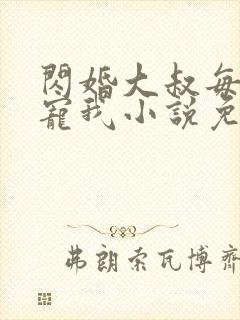 閃婚大叔每
寵我小說免
弗朗索瓦博齊